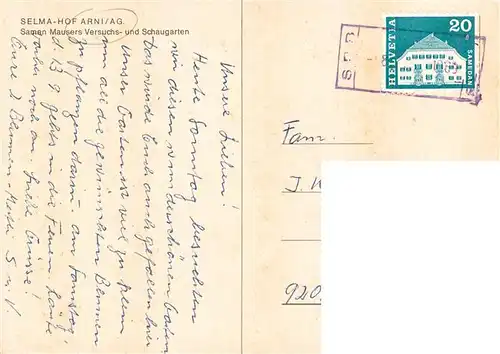 SELMA-HOF ARNI/AG.
Samen Mausers Versuchs- und Schaugarten
Unsere Lieben!
Heute Sonntag besichten
wir diesen wunderschönen Garten
Das würde Euch auch gefallen hier
Unser Garten ist viel zu klein
um all die gewünschten Blumen
zu pflanzen darin. am Samstag,
d. 13.9. gehts in die Ferien. Läute
vorher noch an. Liebe Grüsse!
S. u. V.
HELVETIA
20
SAMEDAN
SBB
Fam.
J.
920